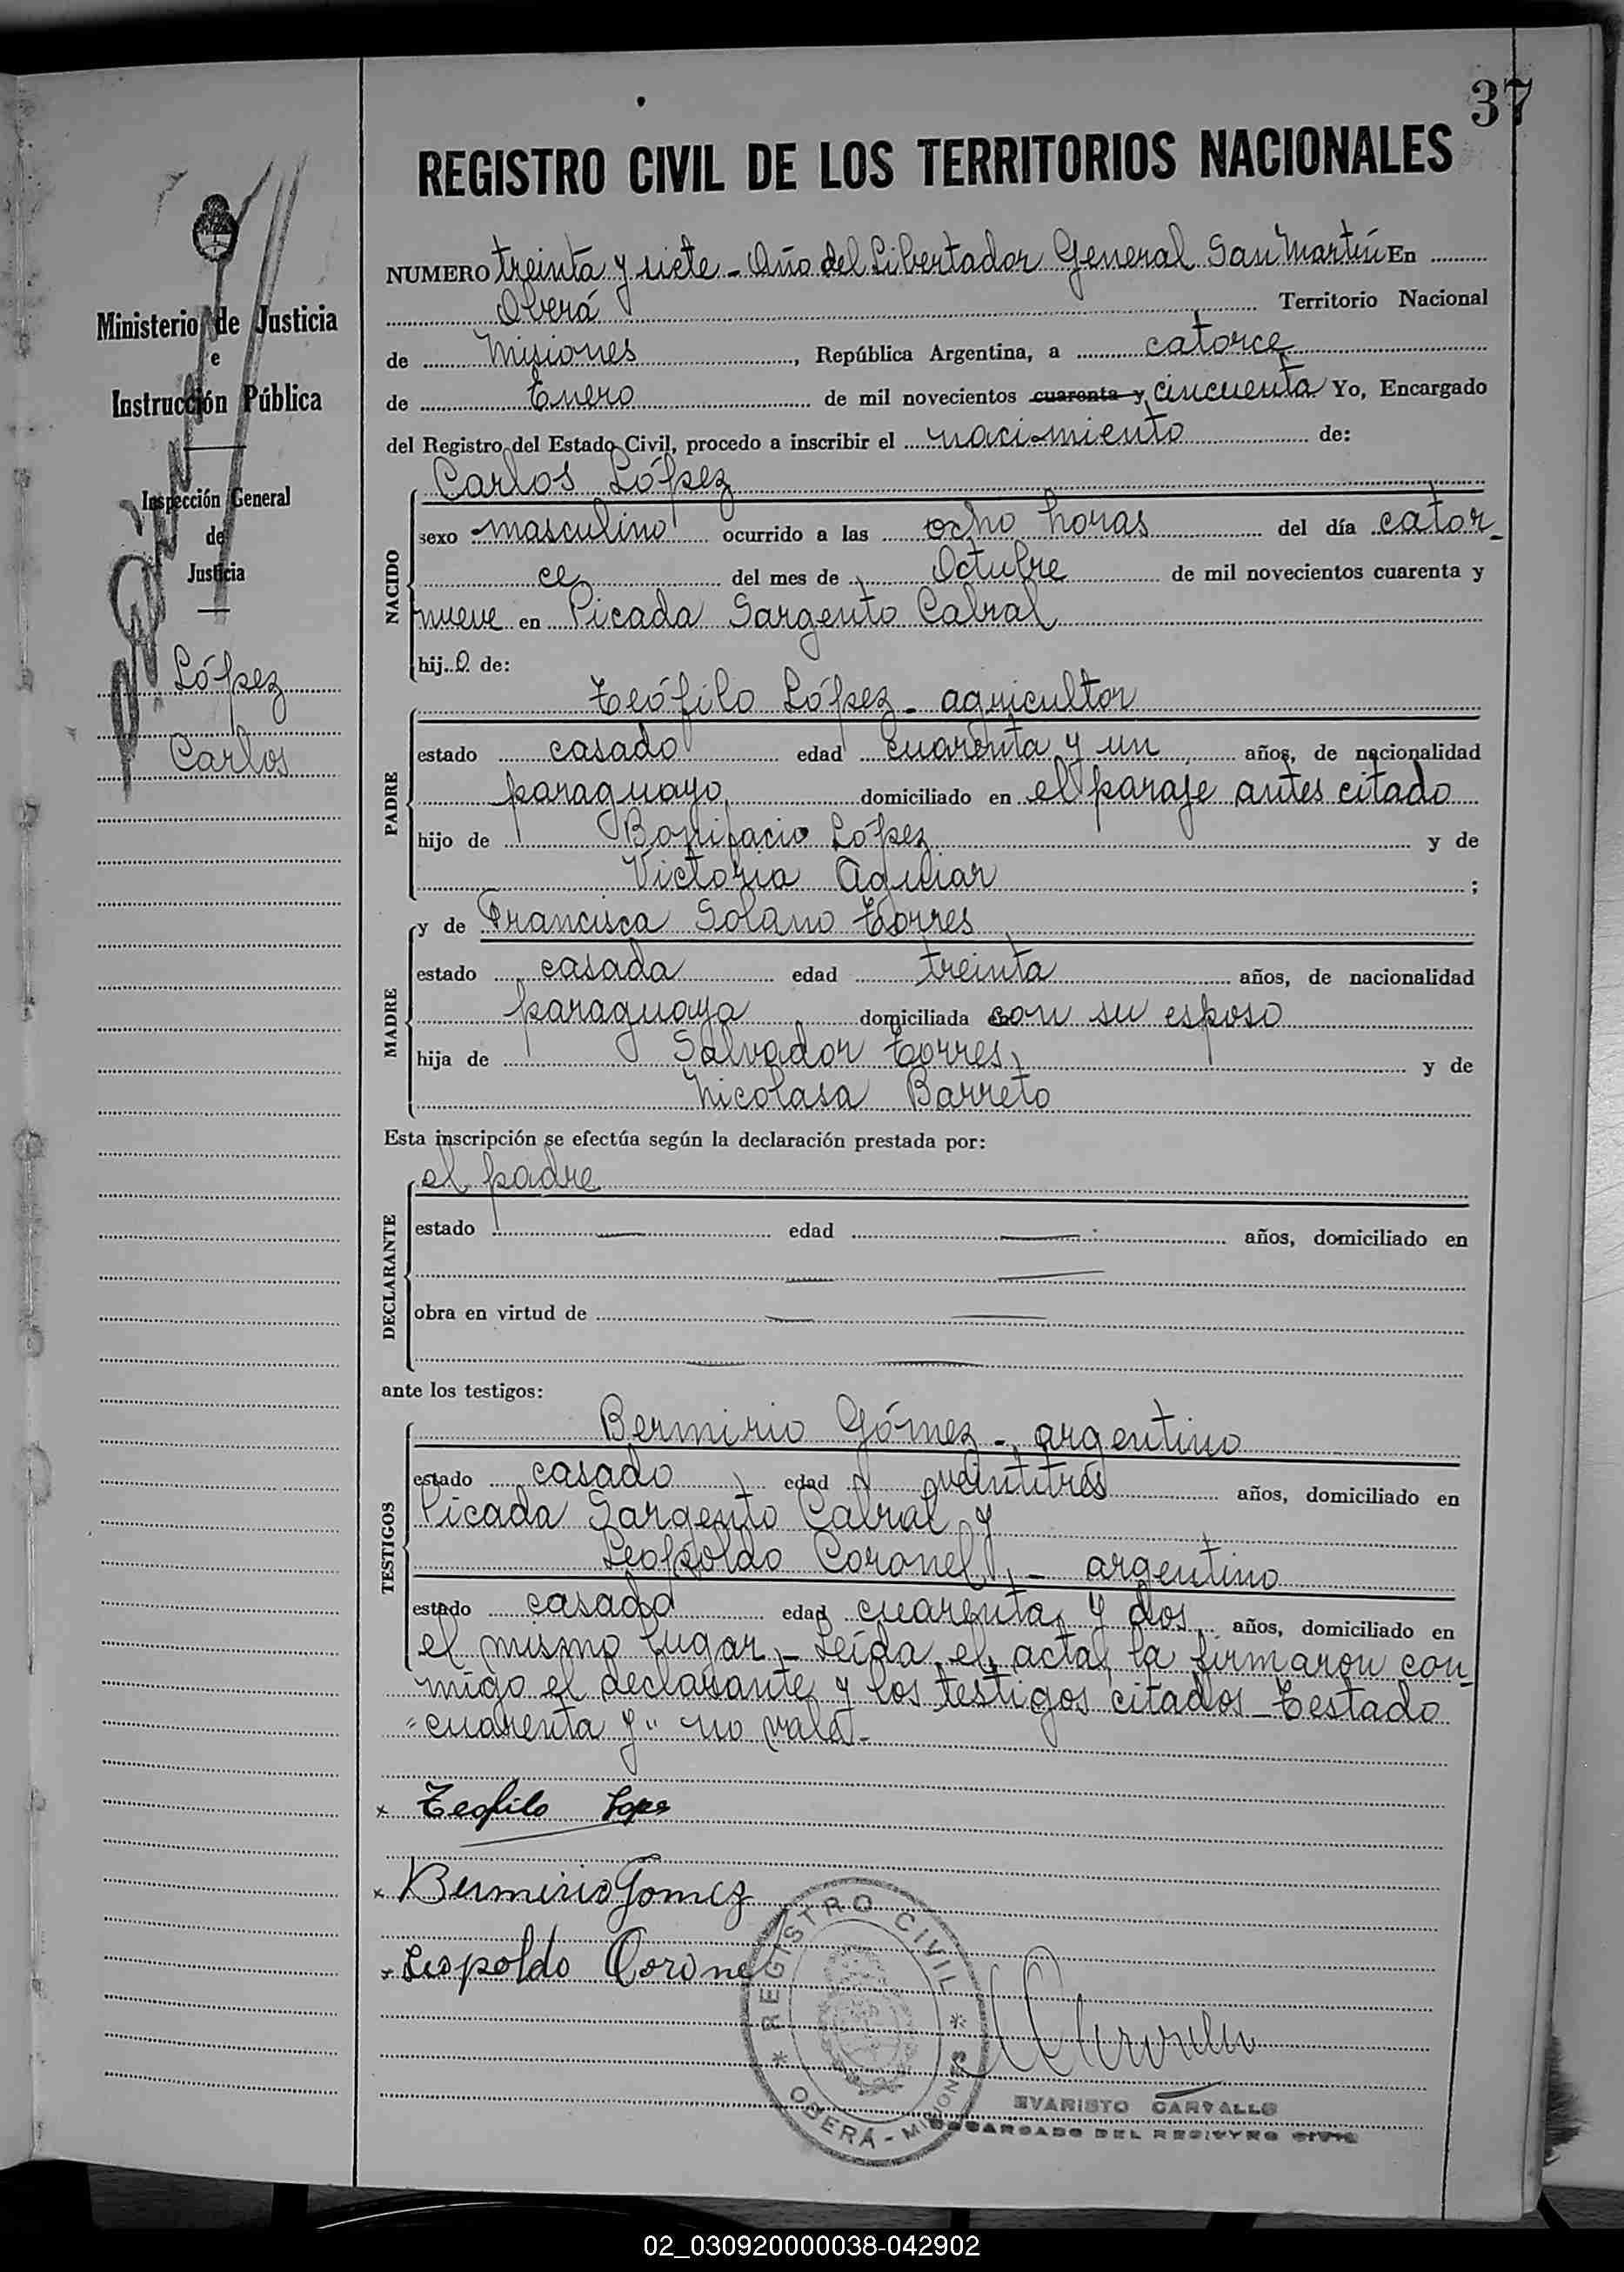 37
REGISTRO CIVIL DE LOS TERRITORIOS NACIONALES
NUMERO treinta y siete - Año del Libertador General San Martín En
Oberá Territorio Nacional
de Misiones, República Argentina, a catorce
de Enero de mil novecientos cuarenta y cincuenta Yo, Encargado
del Registro del Estado Civil, procedo a inscribir el nacimiento de:
Carlos López
NACIDO
sexo masculino ocurrido a las ocho horas del día cator-
ce del mes de Octubre de mil novecientos cuarenta y
nueve en Picada Sargento Cabral
hijo de:
PADRE
Teófilo López - agricultor
estado casado edad cuarenta y un años, de nacionalidad
paraguayo domiciliado en el paraje antes citado
hijo de Bonifacio López y de
Victoria Aguiar ;
MADRE
y de Francisca Solano Torres
estado casada edad treinta años, de nacionalidad
paraguaya domiciliada con su esposo
hija de Salvador Torres y de
Nicolasa Barreto
Esta inscripción se efectúa según la declaración prestada por:
DECLARANTE
el padre
estado edad años, domiciliado en
obra en virtud de
ante los testigos:
TESTIGOS
Bermirio Gómez - argentino
estado casado edad veintitrés años, domiciliado en
Picada Sargento Cabral y
Leopoldo Coronel - argentino
estado casado edad cuarenta y dos años, domiciliado en
el mismo lugar - Leída el acta la firmaron con-
migo el declarante y los testigos citados - Testado
"cuarenta y" no vale -
x Teofilo Lopes
x Bermirio Gomez
x Leopoldo Coronel
* REGISTRO CIVIL *
OBERÁ - MISIONES
EVARISTO CARVALLO
ENCARGADO DEL REGISTRO CIVIL
Ministerio de Justicia
e
Instrucción Pública
Inspección General
de
Justicia
López
Carlos
02_030920000038-042902